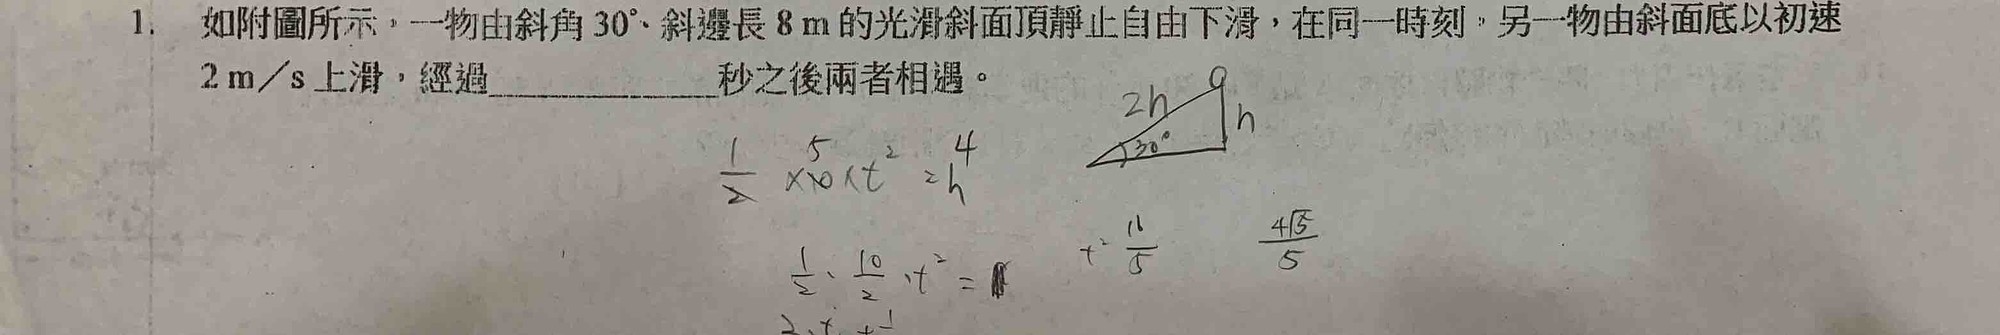 1. 如附圖所示，一物由斜角 30°、斜邊長 8 m 的光滑斜面頂靜止自由下滑，在同一時刻，另一物由斜面底以初速
2 m／s 上滑，經過________秒之後兩者相遇。
2h
h
30°
5 4
1/2 ×10×t² =h
t² 16/5
4√5/5
1/2 · 10/2 · t² =